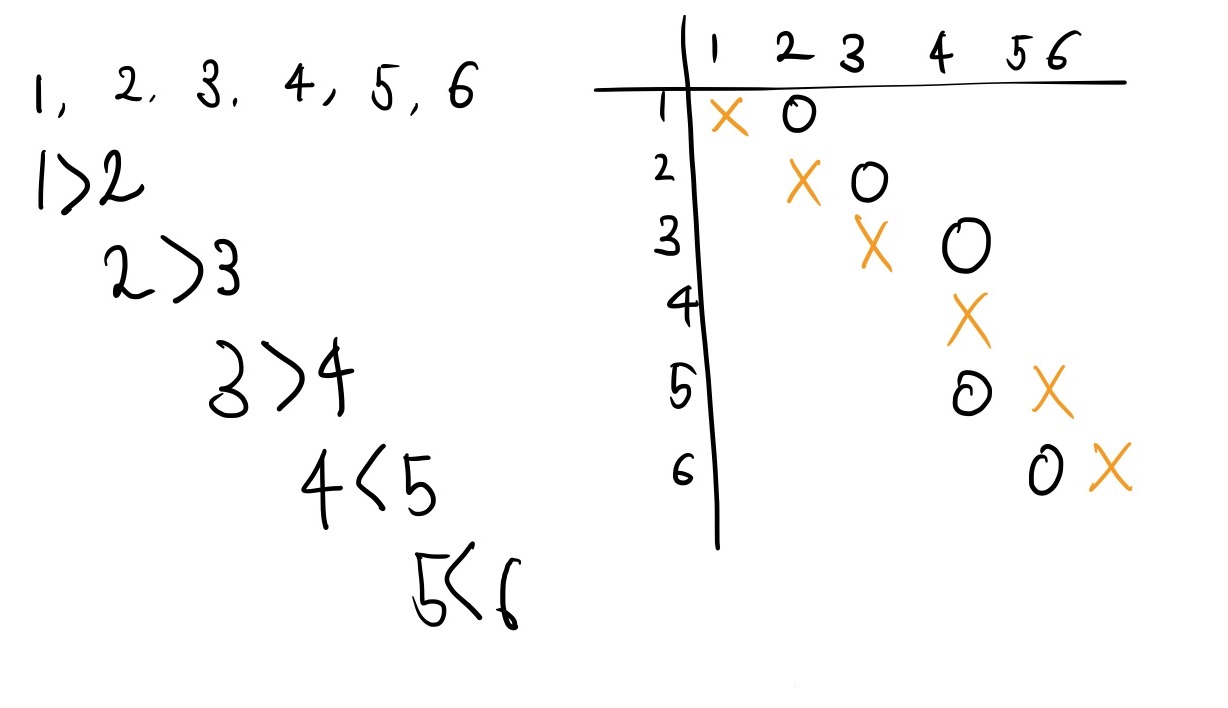 1, 2. 3. 4, 5, 6
1>2
2>3
3>4
4<5
5<6
1 2 3 4 5 6
1 X O
2 X O
3 X O
4 X
5 O X
6 O X